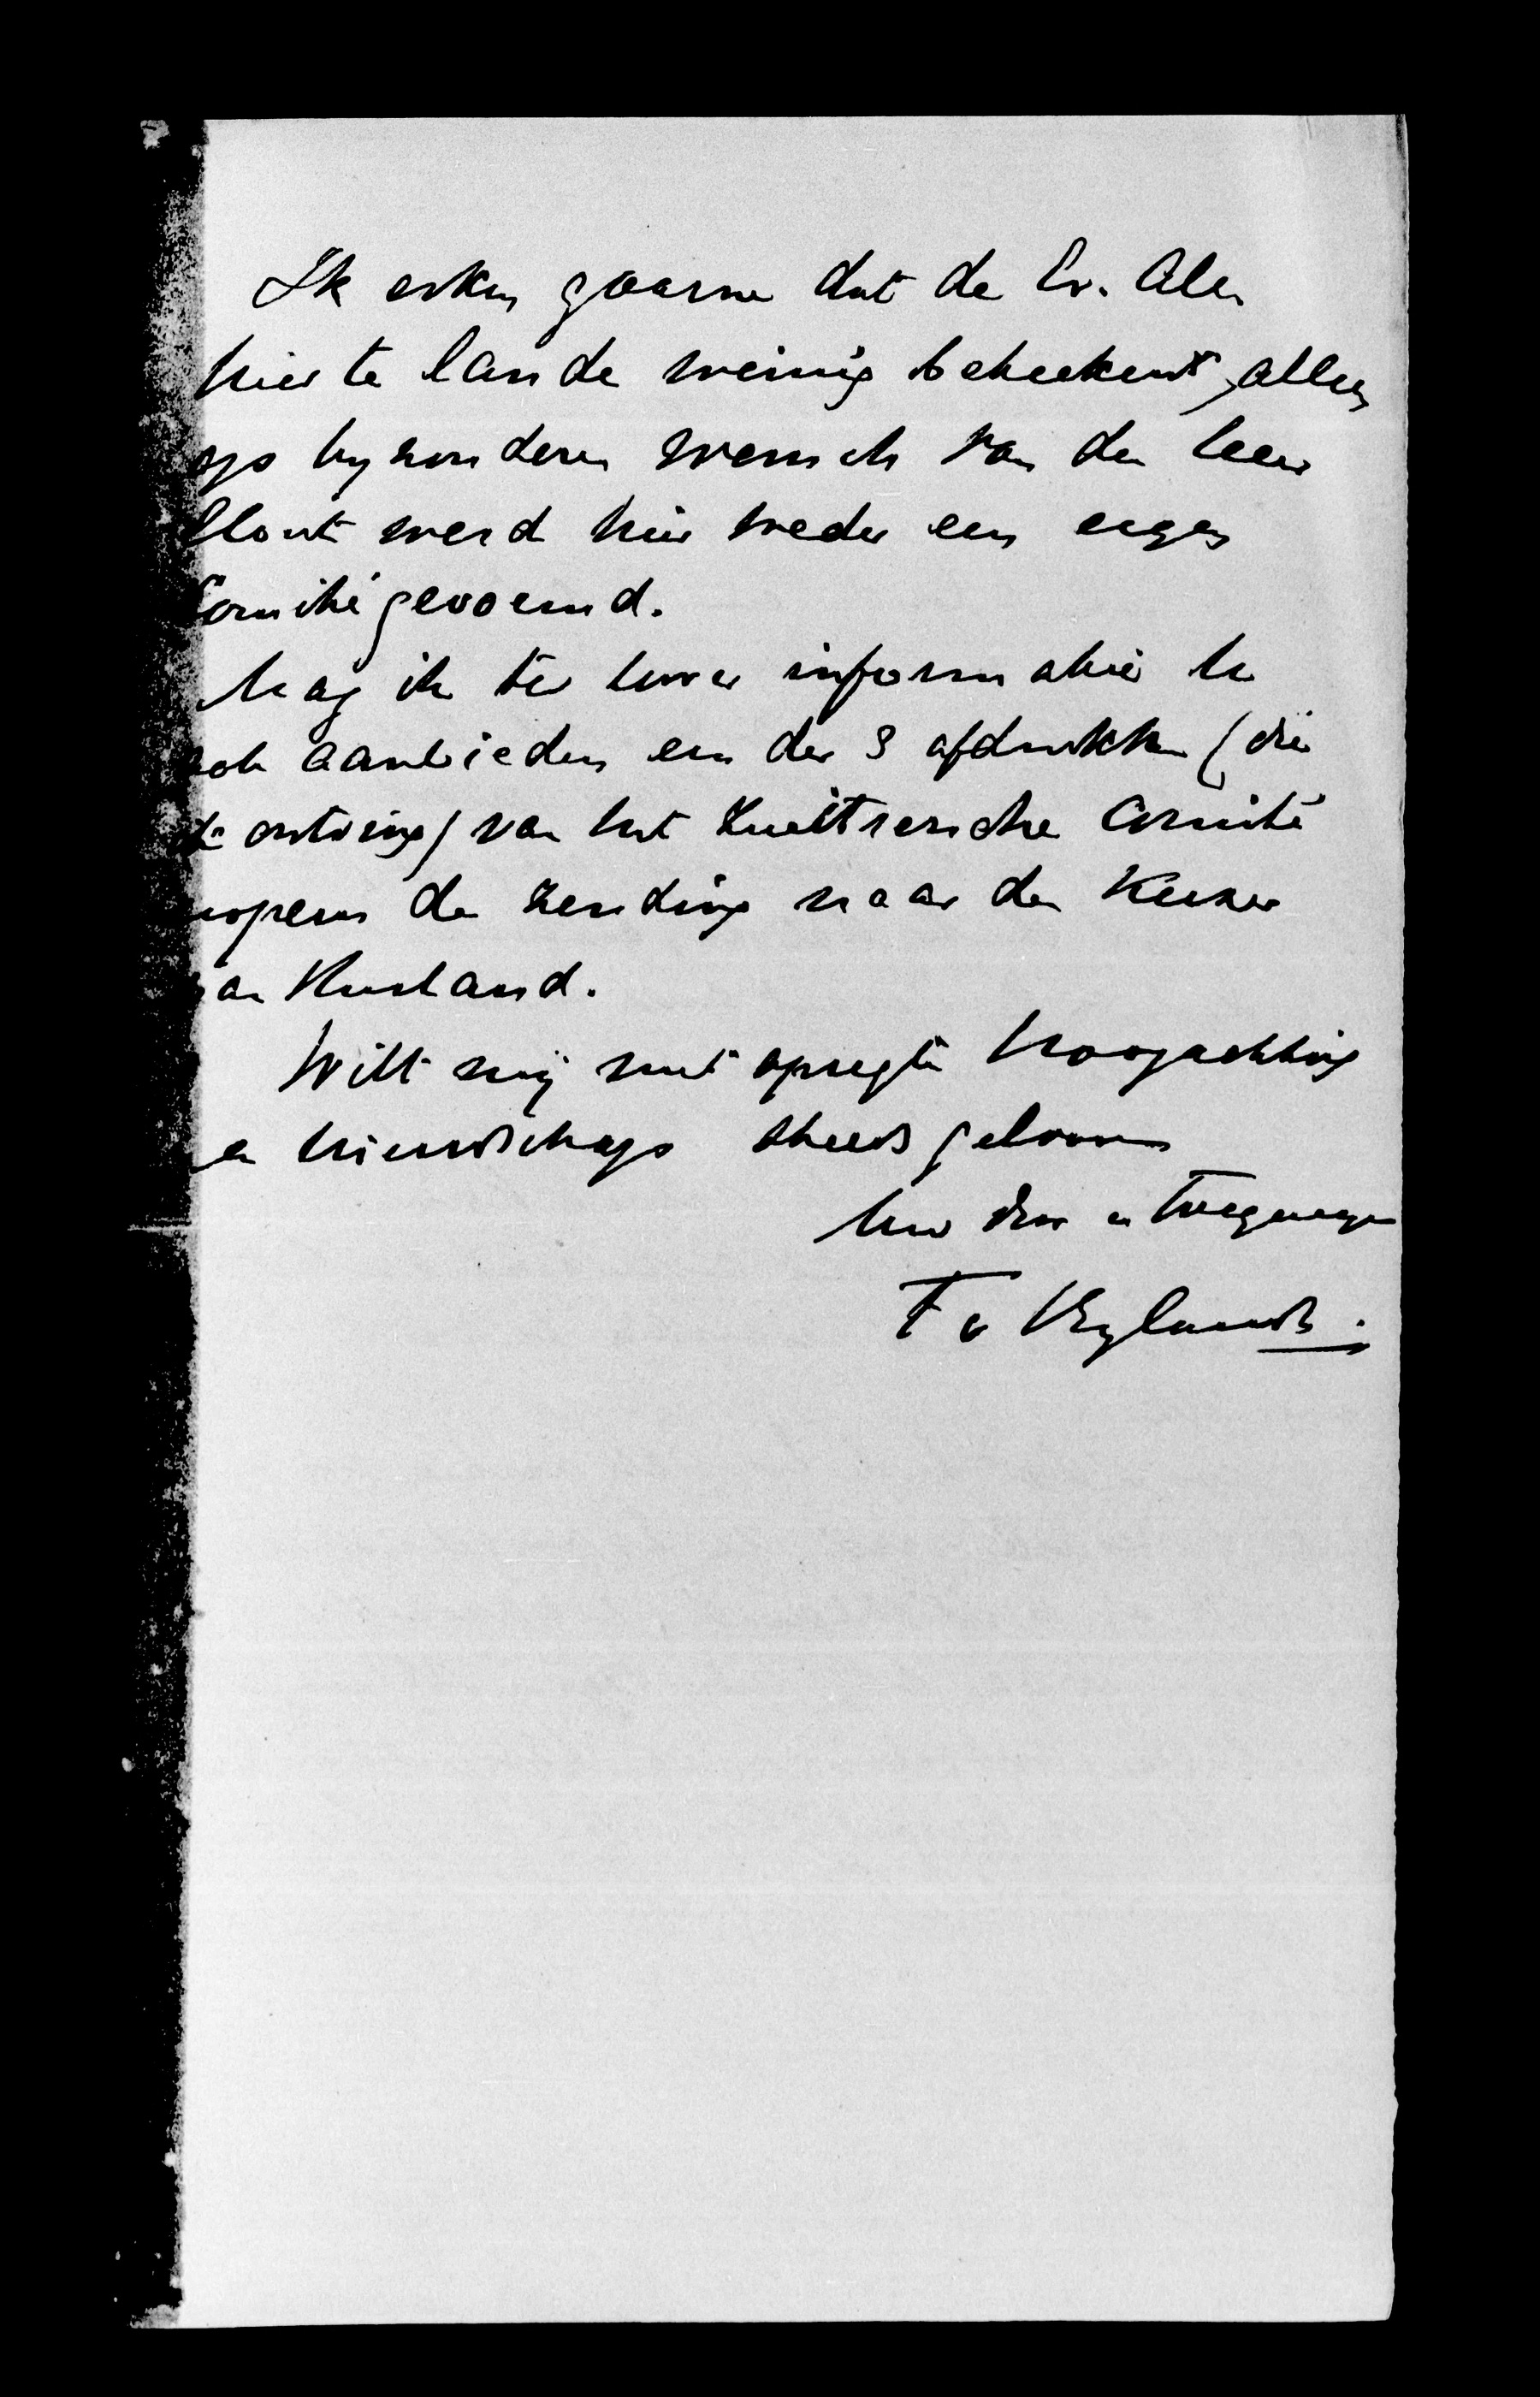 Ik erken gaarne dat de Ev. Alen
hier te lande weinig beteekent, alleen
op byzonderen wensch van den heer
Elout werd hier weder een eigen
Comité gevormd.
Mag ik ter Uwer informatie U
ook aanbieden een der 3 afdrukken (die
ik ontving) van het Zwitsersche Comité
nopens de Zending naar den Keizer
van Rusland.
Wilt mij met opregte hoogachting
en vriendschap steeds gelooven
Uw dw en toegenegen
F v Bylandt.